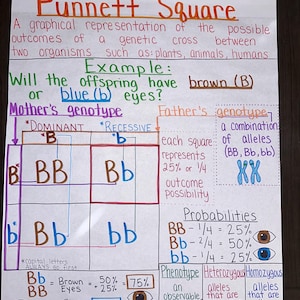 Punnett Square
A graphical representation of the possible
outcomes of a genetic cross between
two organisms such as: plants, animals, humans
Example:
Will the offspring have brown (B)
or blue (b) eyes?
Mother's genotype
Father's genotype
*DOMINANT *RECESSIVE
B b
B BB Bb
b Bb bb
*capital letters
ALWAYS go first
each square
represents
25% or 1/4
outcome
possibility
a combination
of alleles
(BB, Bb, bb)
Probabilities
BB - 1/4 = 25%
Bb - 2/4 = 50%
bb - 1/4 = 25%
BB
Bb
Bb
= Brown Eyes
50%
25%
75%
Phenotype
an
observable
Heterozygous
alleles
that are
Homozygous
alleles
that are